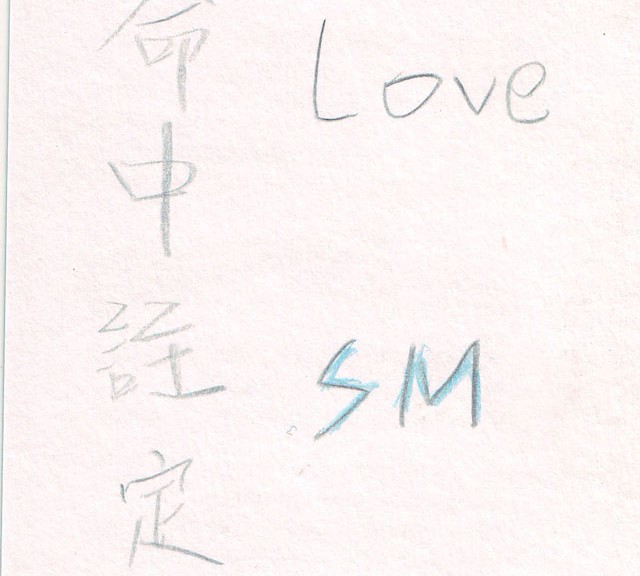 命中註定
Love
SM